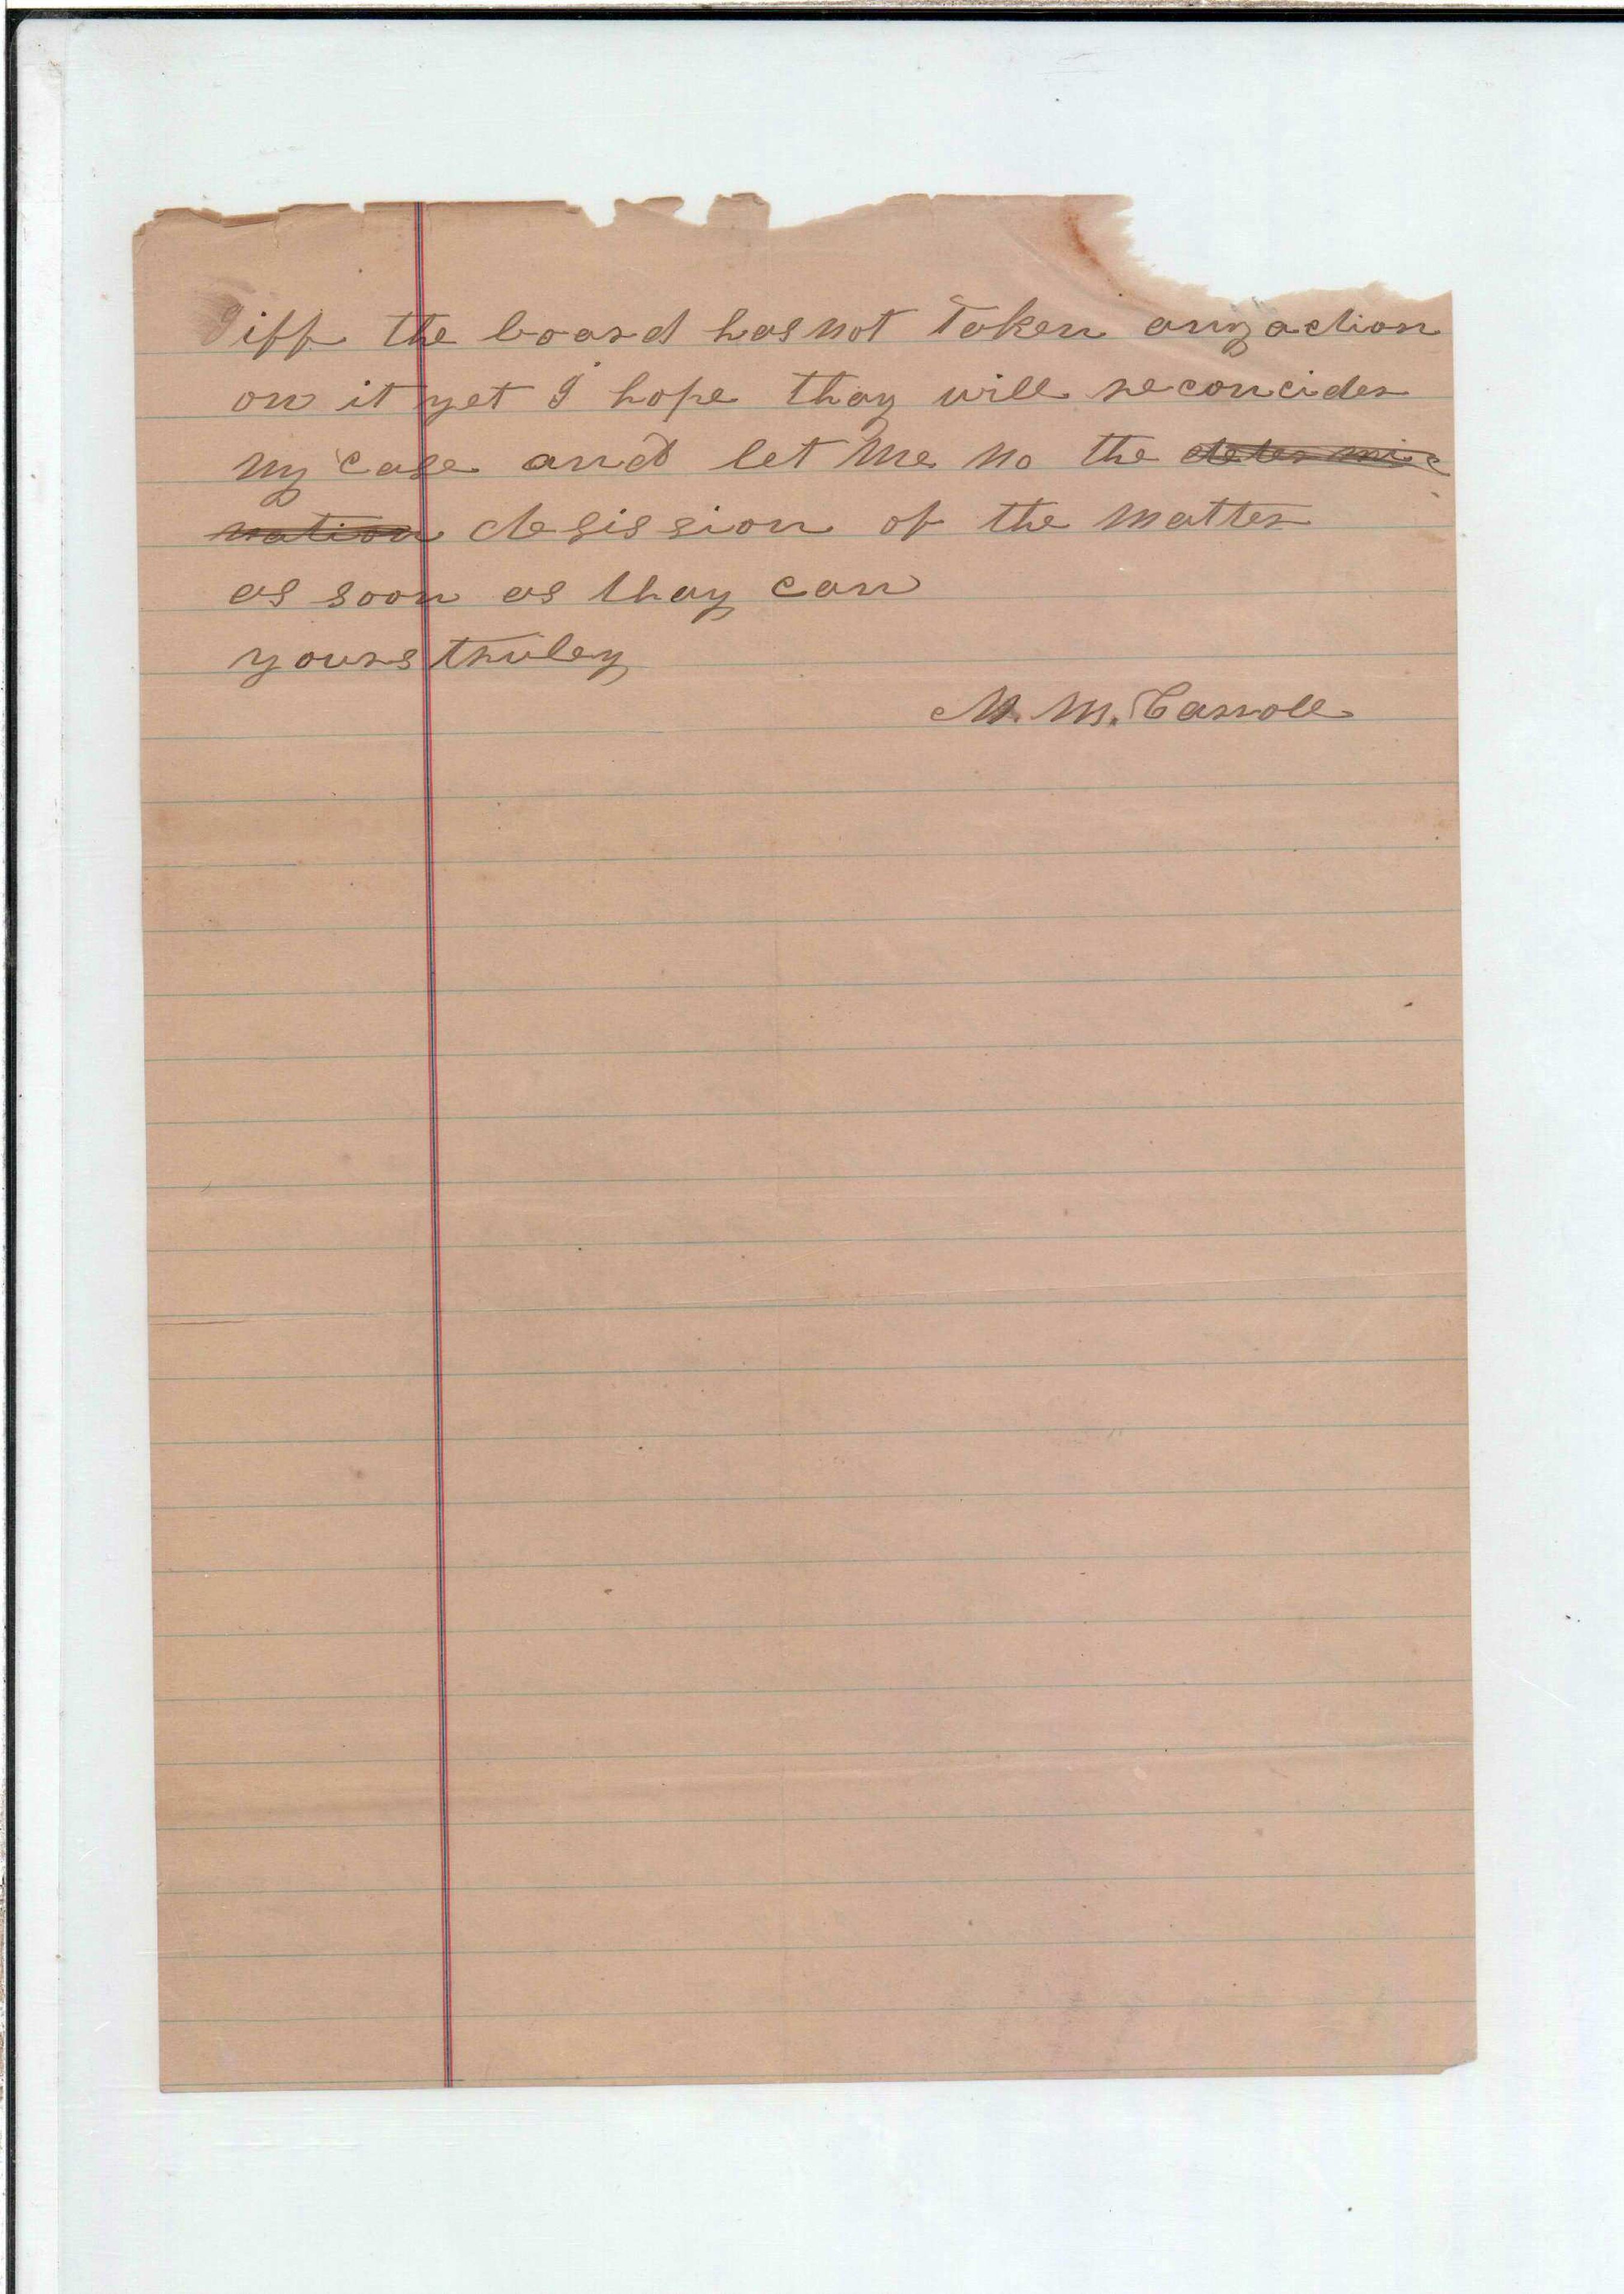 iff the board has not Taken any action
on it yet I hope thay will reconcider
my case and let me no the determi
nation desission of the matter
as soon as thay can
yours truley
M. M. Carroll